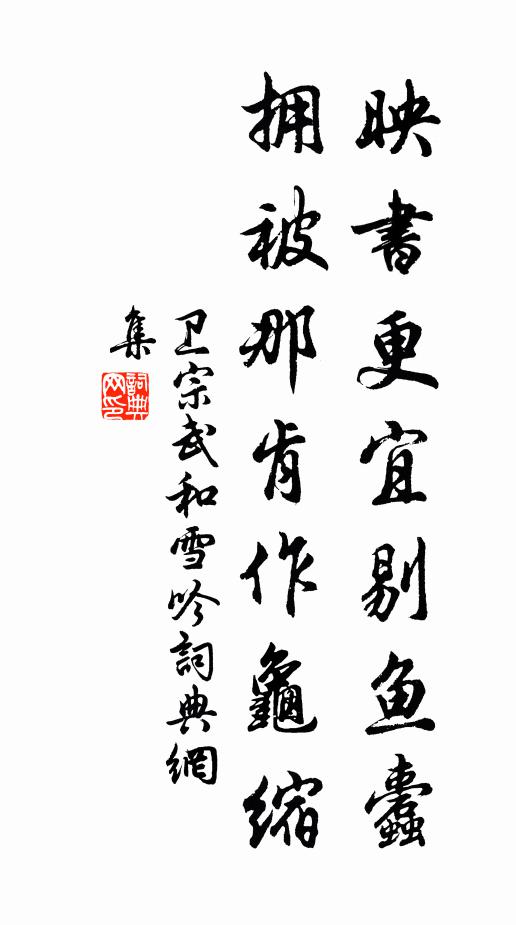 映書更宜剔鱼蠹
拥被那肯作龜缩
卫宗武和雪吟詞典網
集
詞典网印